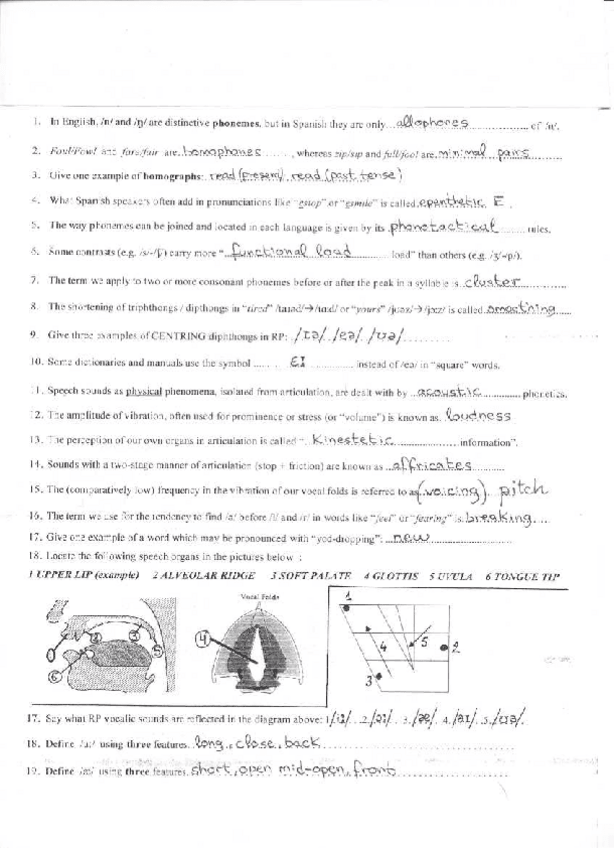 1. In English, /n/ and /ŋ/ are distinctive phonemes, but in Spanish they are only allophones of /n/.
2. Foul/Fowl and fare/fair are homophones, whereas zip/sip and full/fool are minimal pairs
3. Give one example of homographs: read (present), read (past tense)
4. What Spanish speakers often add in pronunciations like "gstop" or "gsmile" is called epenthetic E.
5. The way phonemes can be joined and located in each language is given by its phonotactical rules.
6. Some contrasts (e.g. /s/-/ʃ/) carry more "functional load load" than others (e.g. /ʒ/-/p/).
7. The term we apply to two or more consonant phonemes before or after the peak in a syllable is cluster
8. The shortening of triphthongs / dipthongs in "tired" /taɪəd/→/taːd/ or "yours" /jʊəz/→/jɔːz/ is called smoothing
9. Give three examples of CENTRING diphthongs in RP: /ɪə/ /eə/ /ʊə/
10. Some dictionaries and manuals use the symbol ɛɪ instead of /eə/ in "square" words.
11. Speech sounds as physical phenomena, isolated from articulation, are dealt with by acoustic phonetics.
12. The amplitude of vibration, often used for prominence or stress (or "volume") is known as loudness
13. The perception of our own organs in articulation is called "kinestetic information".
14. Sounds with a two-stage manner of articulation (stop + friction) are known as affricates
15. The (comparatively low) frequency in the vibration of our vocal folds is referred to as (voicing) pitch
16. The term we use for the tendency to find /ə/ before /l/ and /r/ in words like "feel" or "fearing" is breaking
17. Give one example of a word which may be pronounced with "yod-dropping": new
18. Locate the following speech organs in the pictures below :
1 UPPER LIP (example) 2 ALVEOLAR RIDGE 3 SOFT PALATE 4 GLOTTIS 5 UVULA 6 TONGUE TIP
Vocal Folds
2 3 5 6
4
1 2 3 4 5
17. Say what RP vocalic sounds are reflected in the diagram above: 1 /iː/ 2 /ɔː/ 3 /æ/ 4 /aɪ/ 5 /ʊə/
18. Define /uː/ using three features long, close, back
19. Define /æ/ using three features short, open mid-open, front